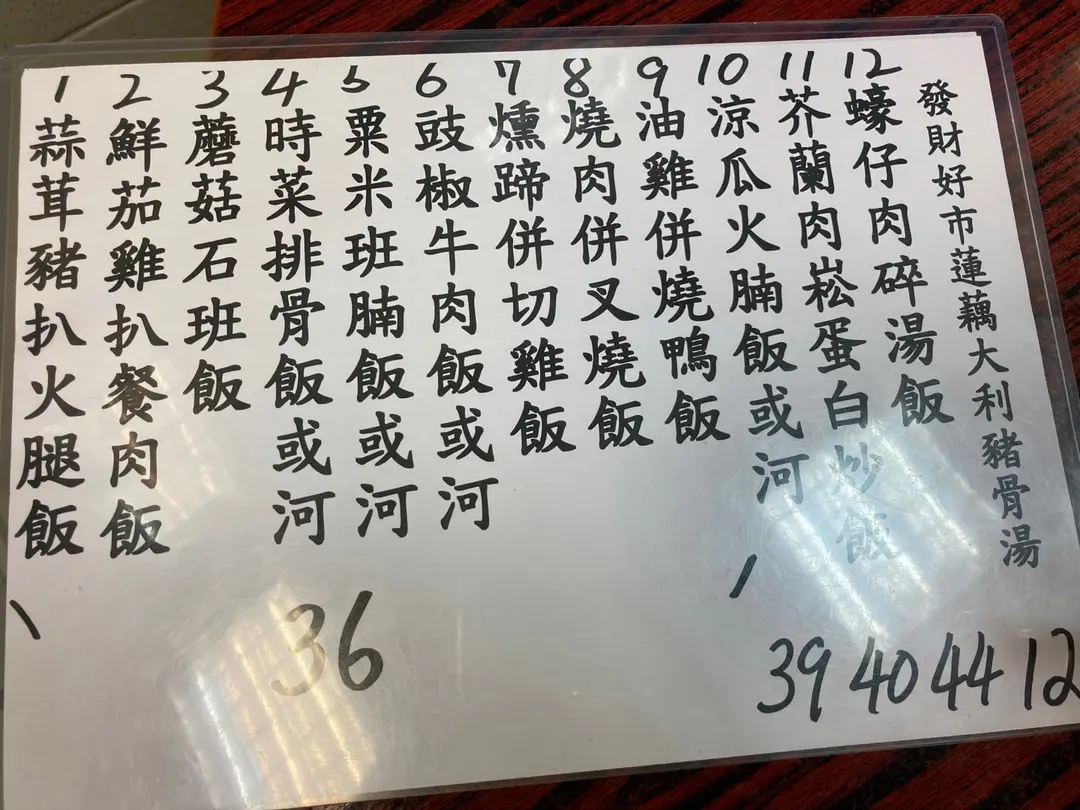 1 蒜茸豬扒火腿飯
2 鮮茄雞扒餐肉飯
3 蘑菇石班飯
4 時菜排骨飯或河
5 粟米班腩飯或河
6 豉椒牛肉飯或河
7 燻蹄併切雞飯
8 燒肉併叉燒飯
9 油雞併燒鴨飯
10 涼瓜火腩飯或河
11 芥蘭肉崧蛋白炒飯
12 蠔仔肉碎湯飯
發財好市蓮藕大利豬骨湯
36
39
40
44
12